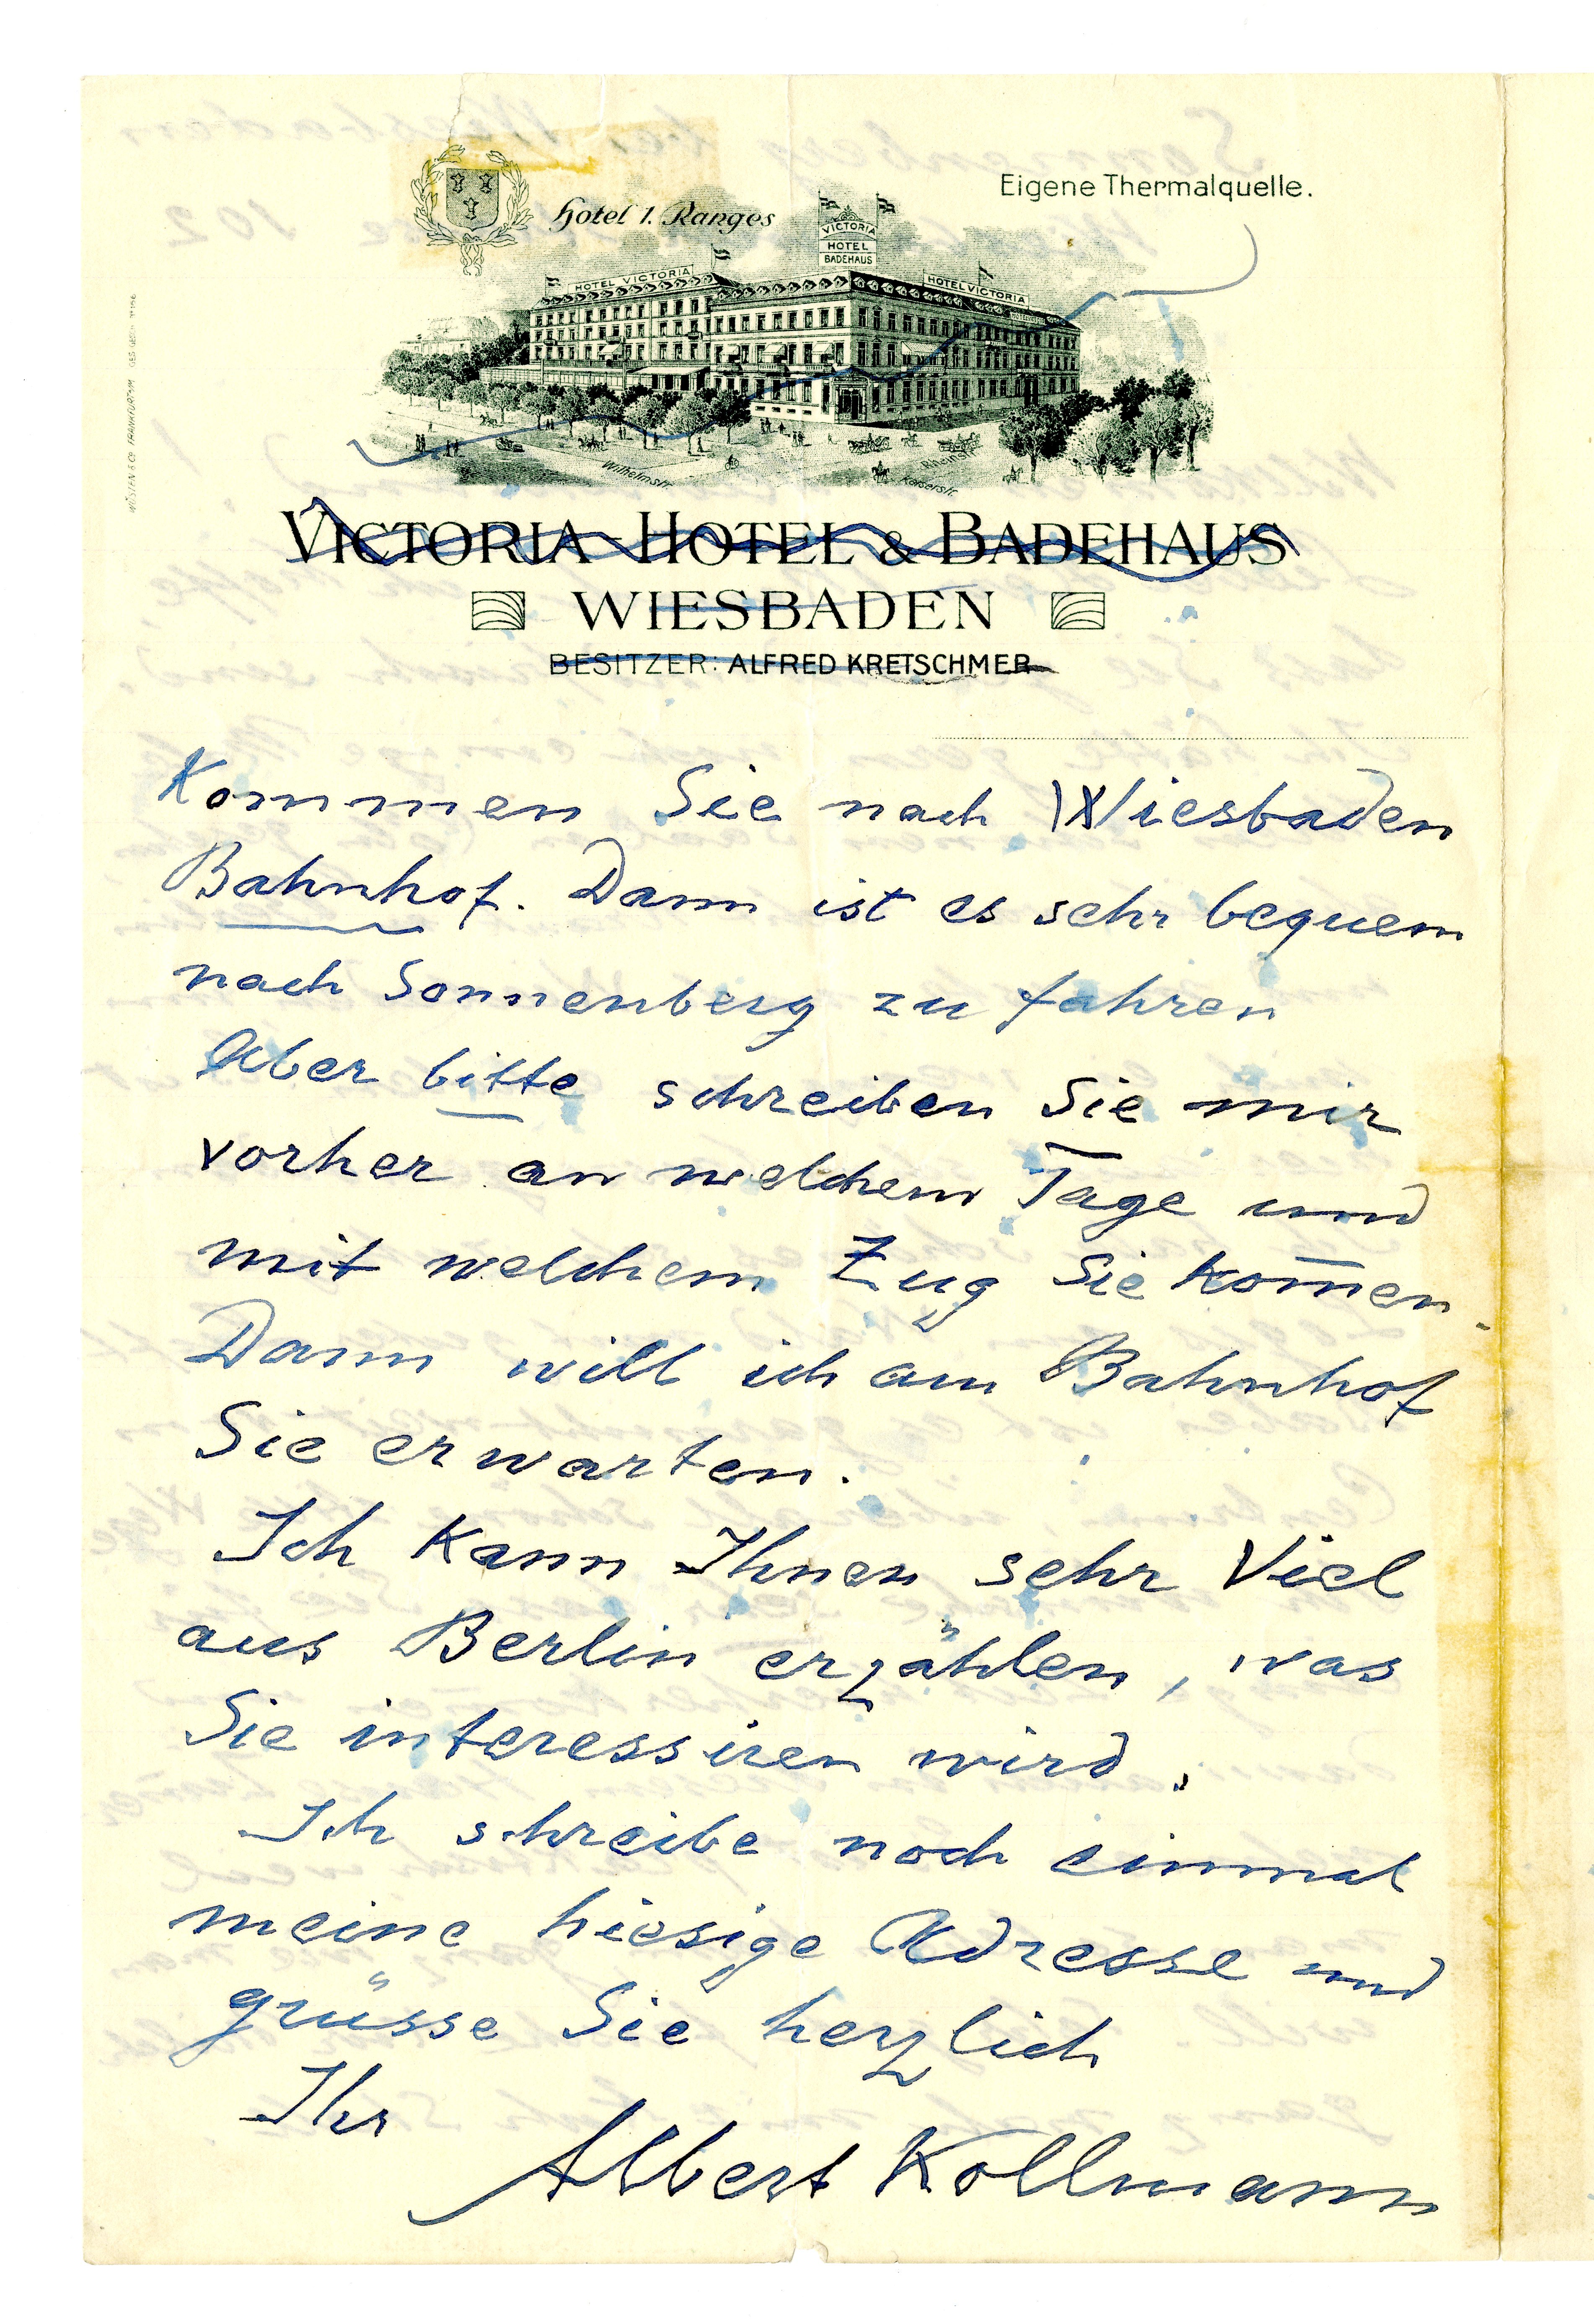 Eigene Thermalquelle.
Hotel 1. Ranges
VICTORIA
HOTEL
BADEHAUS
HOTEL VICTORIA
HOTEL VICTORIA
Wilhelmstr.
Rheinstr.
Kaiserstr.
VICTORIA-HOTEL & BADEHAUS
WIESBADEN
BESITZER: ALFRED KRETSCHMER
Kommen Sie nach Wiesbaden
Bahnhof. Dann ist es sehr bequem
nach Sonnenberg zu fahren
Aber bitte schreiben Sie mir
vorher an welchem Tage und
mit welchem Zug Sie kom̅en.
Dann will ich am Bahnhof
Sie erwarten.
Ich kann Ihnen sehr Viel
aus Berlin erzählen, was
Sie interessiren wird.
Ich schreibe noch einmal
meine hiesige Adresse und
grüsse Sie herzlich
Ihr
Albert Kollmann